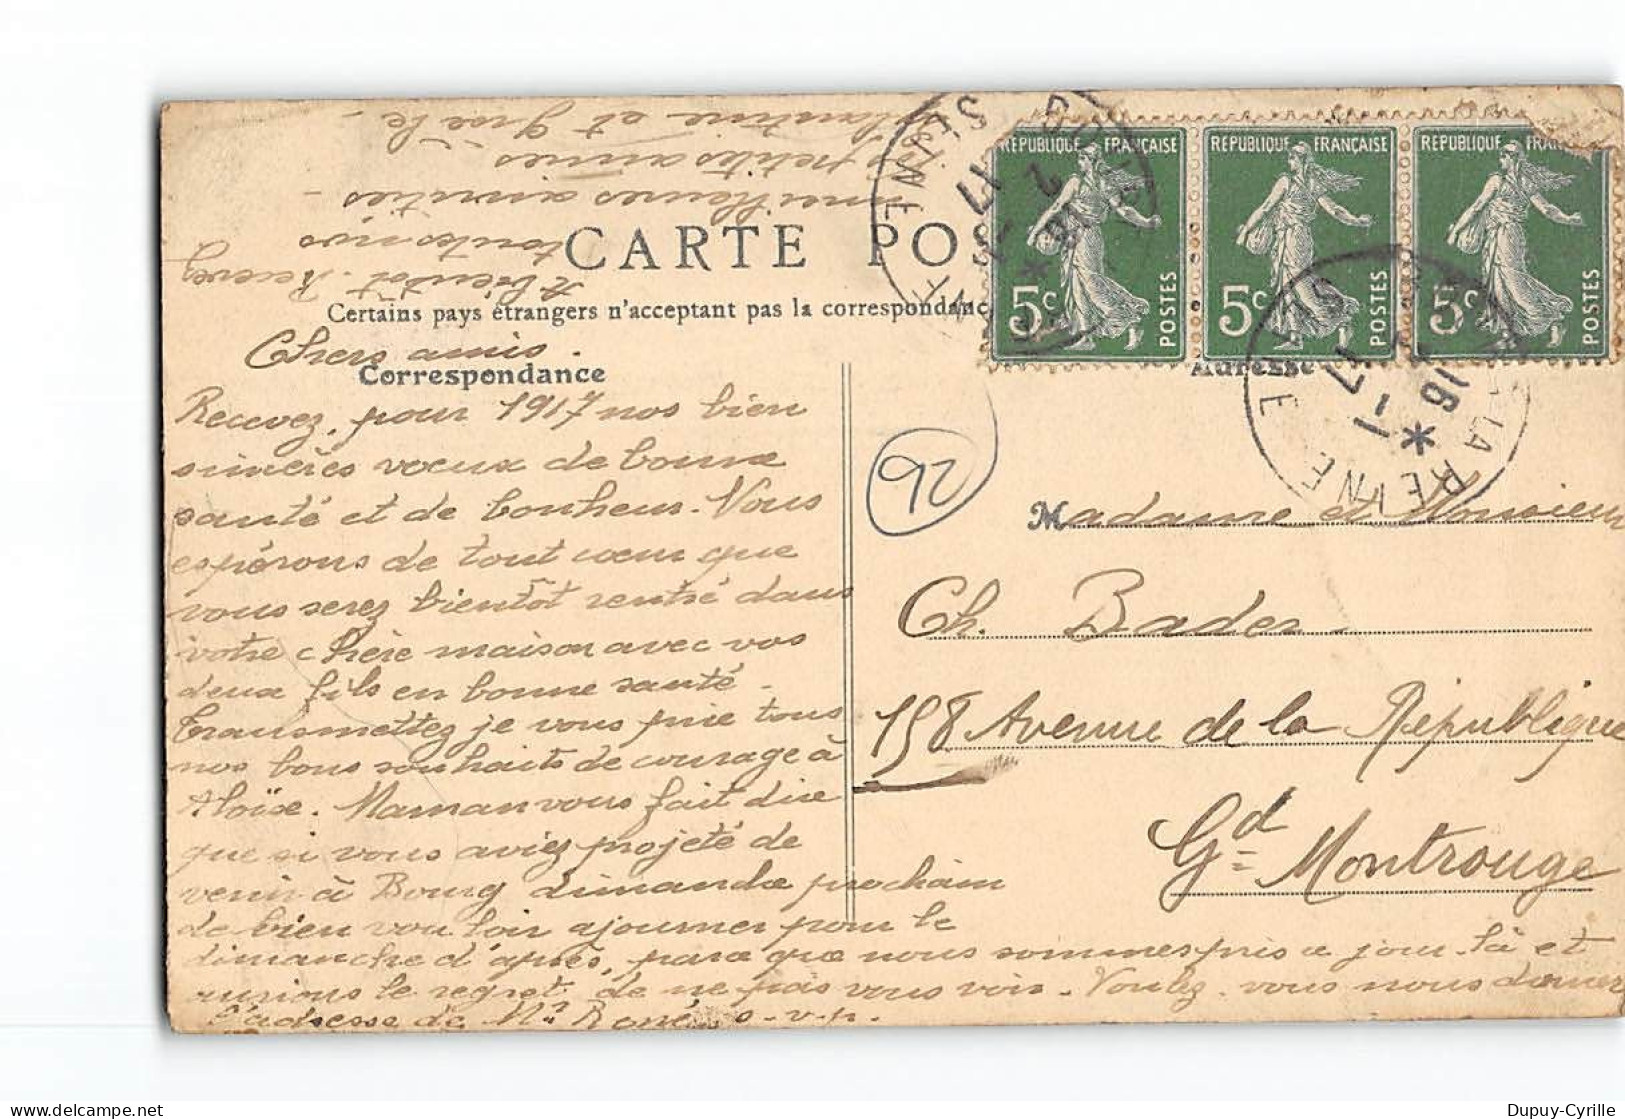 CARTE POS
Certains pays étrangers n'acceptent pas la correspondance
Correspondance
Adresse
RÉPUBLIQUE FRANÇAISE
5c POSTES
RÉPUBLIQUE FRANÇAISE
5c POSTES
RÉPUBLIQUE FRAN
5c POSTES
BOURG LA REINE
SEINE
16 * 1-1 17
92
Chers amis.
Recevez, pour 1917 nos bien
sincères voeux de bonne
santé et de bonheur. Vous
espérons de tout coeur que
vous serez bientôt rentré dans
votre chère maison avec vos
deux fils en bonne santé.
Transmettez je vous prie tous
nos bons souhaits de courage à
Aloïse. Maman vous fait dire
que si vous aviez projeté de
venir à Bourg dimanche prochain
de bien vouloir ajourner pour le
dimanche d'après, parce que nous sommes pris ce jour là et
aurions le regret de ne pas vous voir. Voulez-vous nous donner
l'adresse de Mr René s.v.p.
A bientôt. Recevez
toutes nos
meilleures amitiés
Vos petites amies
et Gisèle
Madame et Monsieur
Ch. Bader
158 Avenue de la République
Gd Montrouge
Dupuy-Cyrille